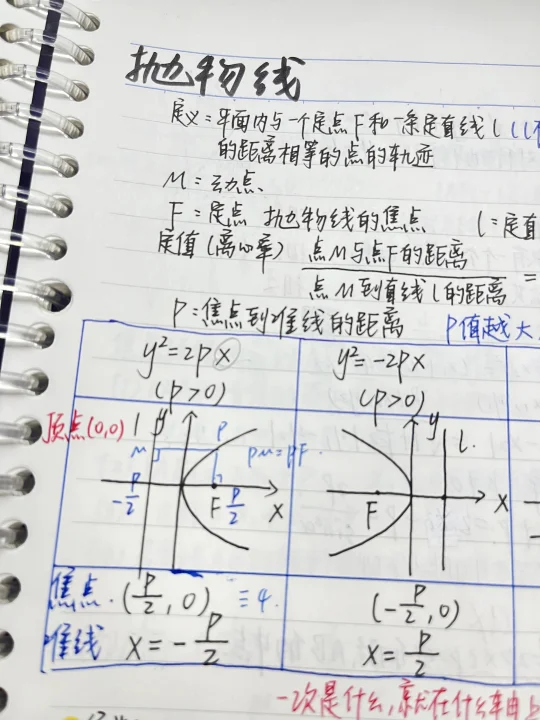 抛物线
定义=平面内与一个定点F和一条定直线l(l不
的距离相等的点的轨迹
M=动点.
F=定点 抛物线的焦点 l=定直
定值(离心率) 点M与点F的距离
点M到直线l的距离 =
P=焦点到准线的距离 P值越大
y²=2px y²=-2px
(p>0) (p>0)
顶点(0,0) l y y l.
M P PM=PF.
-p/2 F p/2 x F x
焦点. (p/2, 0) 三4. (-p/2, 0)
准线 x=-p/2 x=p/2
一次是什么,就在什么轴上